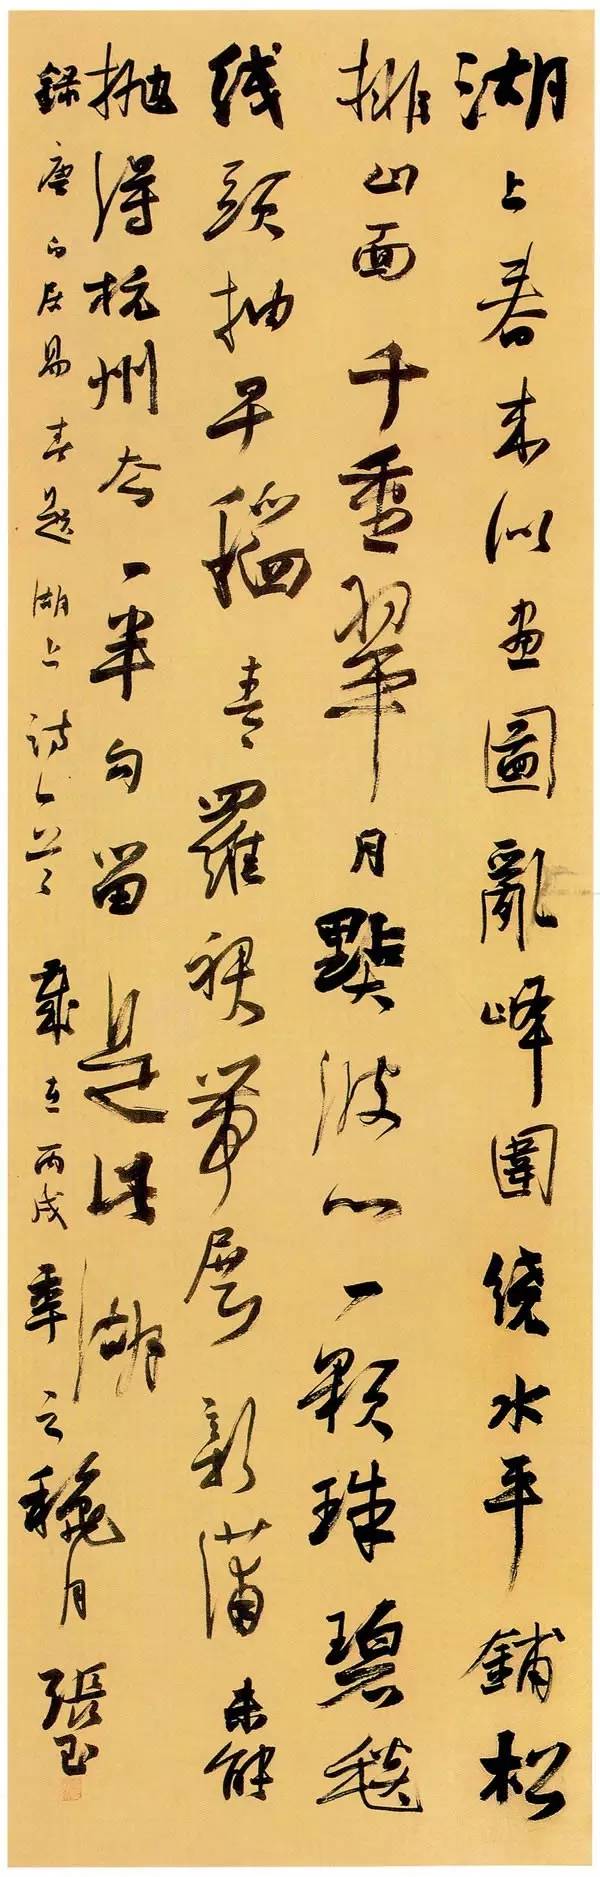 湖上春来似画圖亂峰圍绕水平鋪松
排山面千重翠月點波心一顆珠碧毯
线頭抽早稻青羅裙帶展新蒲未能
抛得杭州去一半勾留是此湖
錄唐白居易春題湖上詩一首 歲在丙戌年之秋月 張